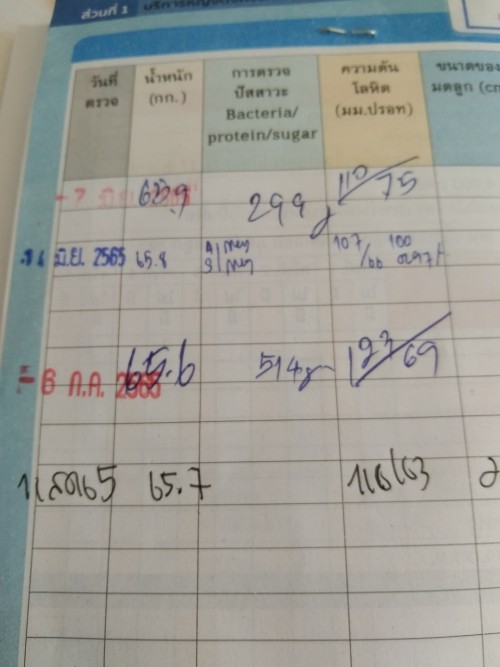 ส่วนที่ 1
วันที่ตรวจ
น้ำหนัก (กก.)
การตรวจปัสสาวะ Bacteria/ protein/sugar
ความดันโลหิต (มม.ปรอท)
ขนาดของ
มดลูก (cm
-7 มิ.ย. 63.9 299 g 110/75
มิ.ย. 2565 65.8 A/neg S/neg 107/66 100
- 6 ก.ค. 2565 65.6 514 g 123/69
65 65.7 116/63